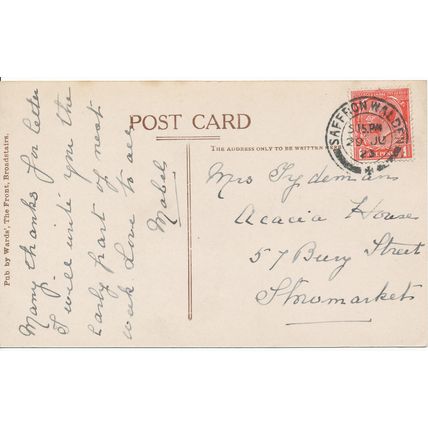 Many thanks for letter
I will write you the
early part of next
week Love to all
Mabel
Pub by Wards', The Front, Broadstairs.
POST CARD
THE ADDRESS ONLY TO BE WRITTEN
SAFFRON WALDEN
15.PM
29 JU
23
Mrs Tydemans
Acacia House
57 Bury Street
Stowmarket